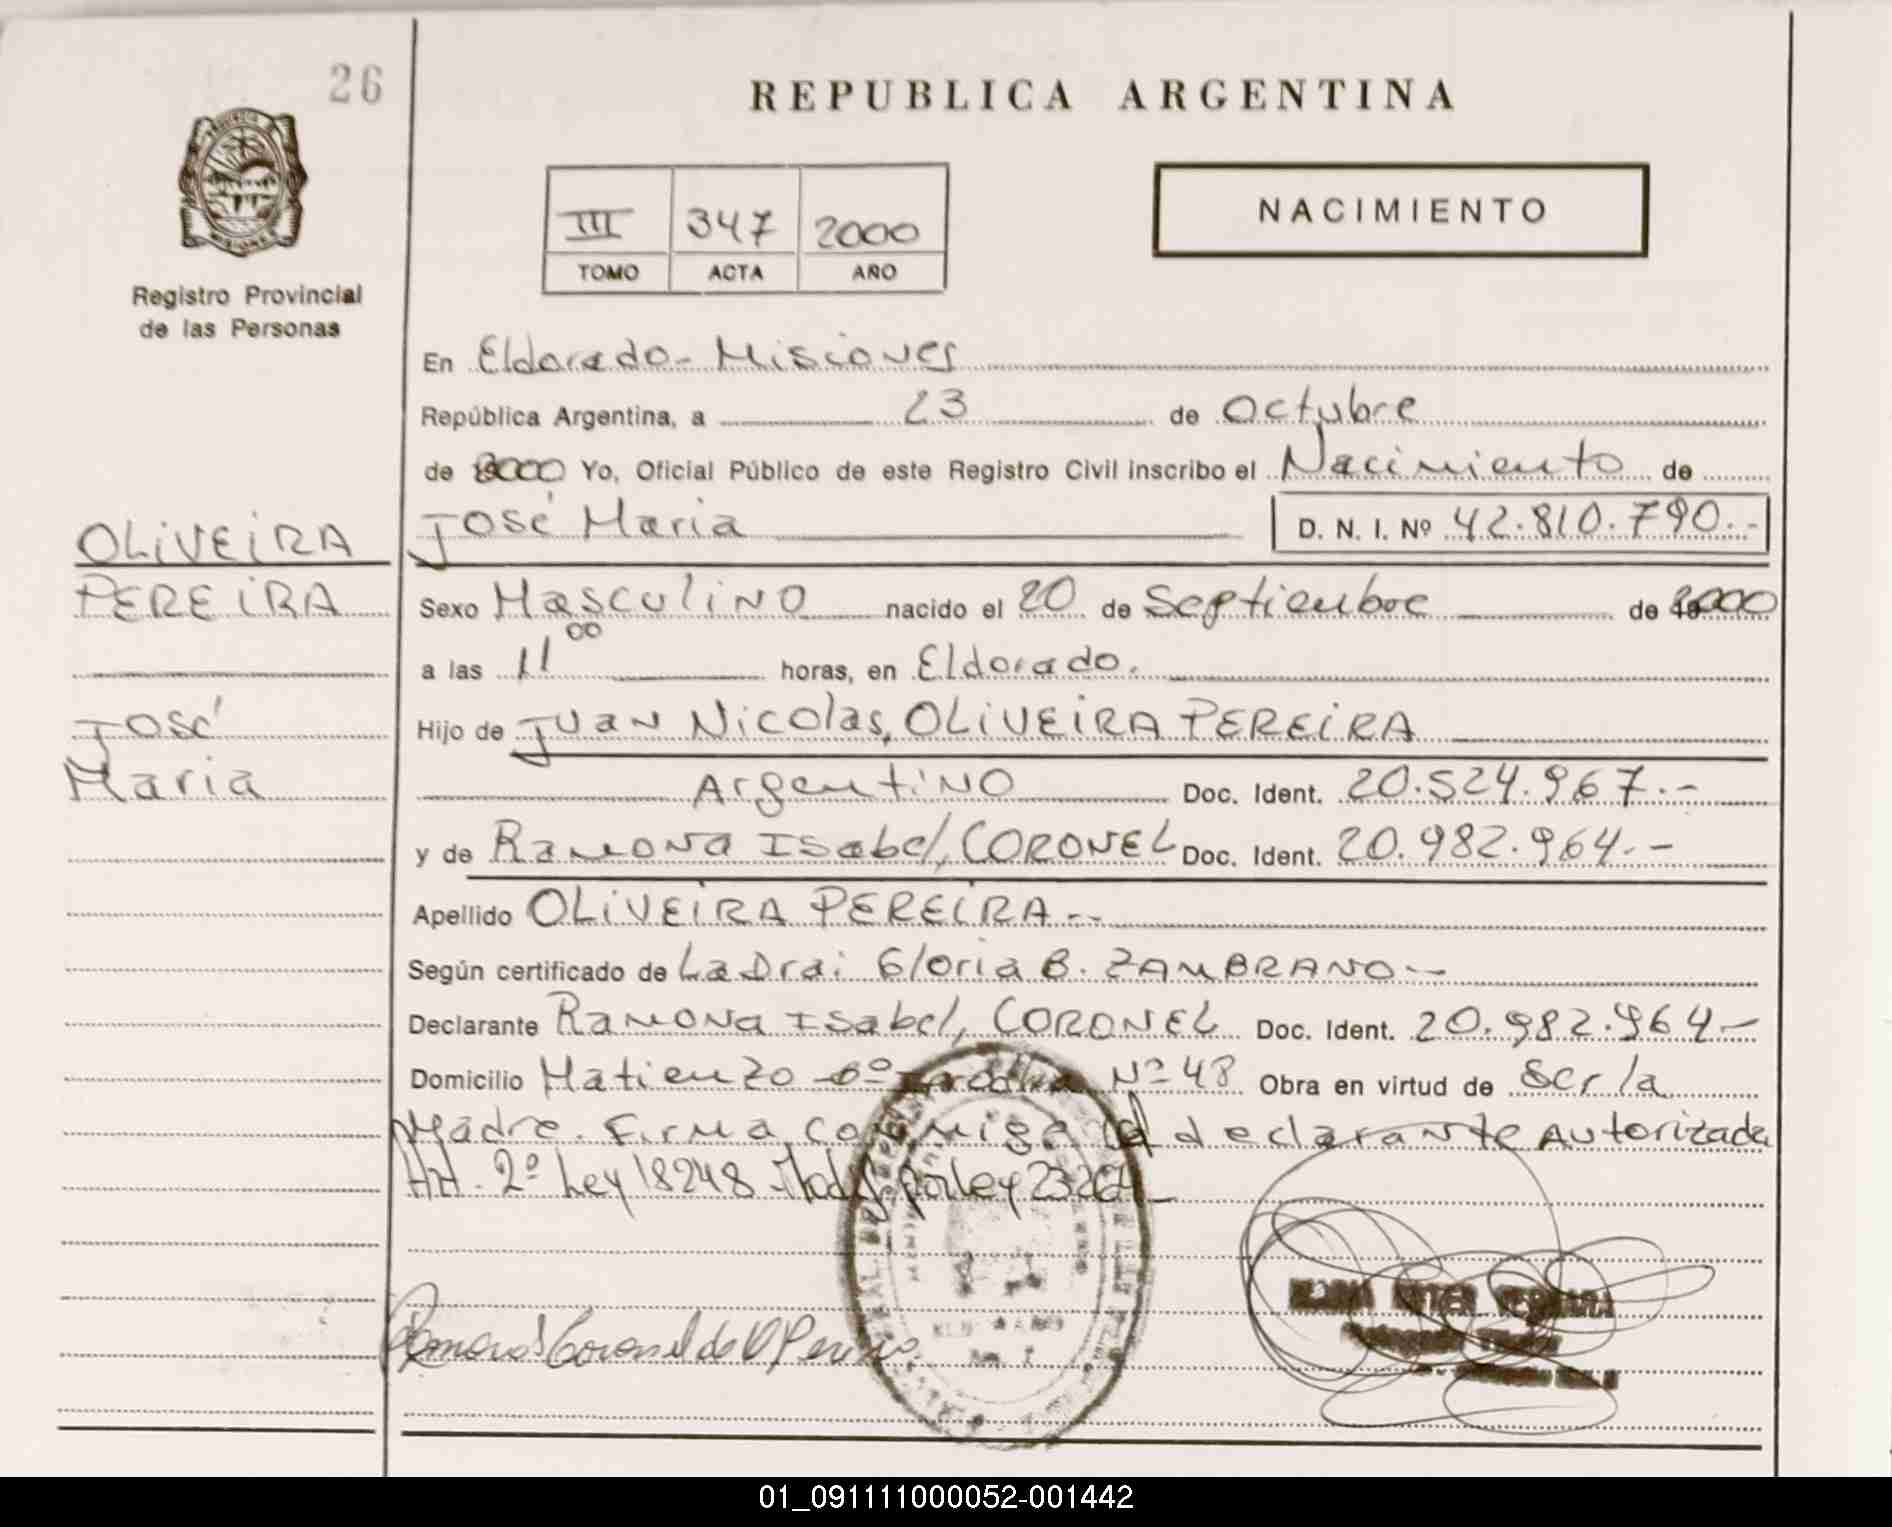 26
REPUBLICA ARGENTINA
III 347 2000
TOMO ACTA AÑO
NACIMIENTO
Registro Provincial
de las Personas
En Eldorado - Misiones
República Argentina, a 23 de Octubre
de 2000 Yo, Oficial Público de este Registro Civil inscribo el Nacimiento de
OLIVEIRA
PEREIRA
José
Maria
José Maria D. N. I. Nº 42.810.790.-
Sexo Masculino nacido el 20 de Septiembre de 2000
a las 11 00 horas, en Eldorado.
Hijo de Juan Nicolas, OLIVEIRA PEREIRA
Argentino Doc. Ident. 20.524.967.-
y de Ramona Isabel, CORONEL Doc. Ident. 20.982.964.-
Apellido OLIVEIRA PEREIRA.-
Según certificado de La Dra: Gloria B. ZAMBRANO-
Declarante Ramona Isabel, CORONEL Doc. Ident. 20.982.964-
Domicilio Matienzo Nº 48 Obra en virtud de ser la
Madre. Firma conmigo la declarante Autorizada
Art. 2º Ley 18248 - Modf por Ley
Ramona Coronel de O Pereira
01_091111000052-001442